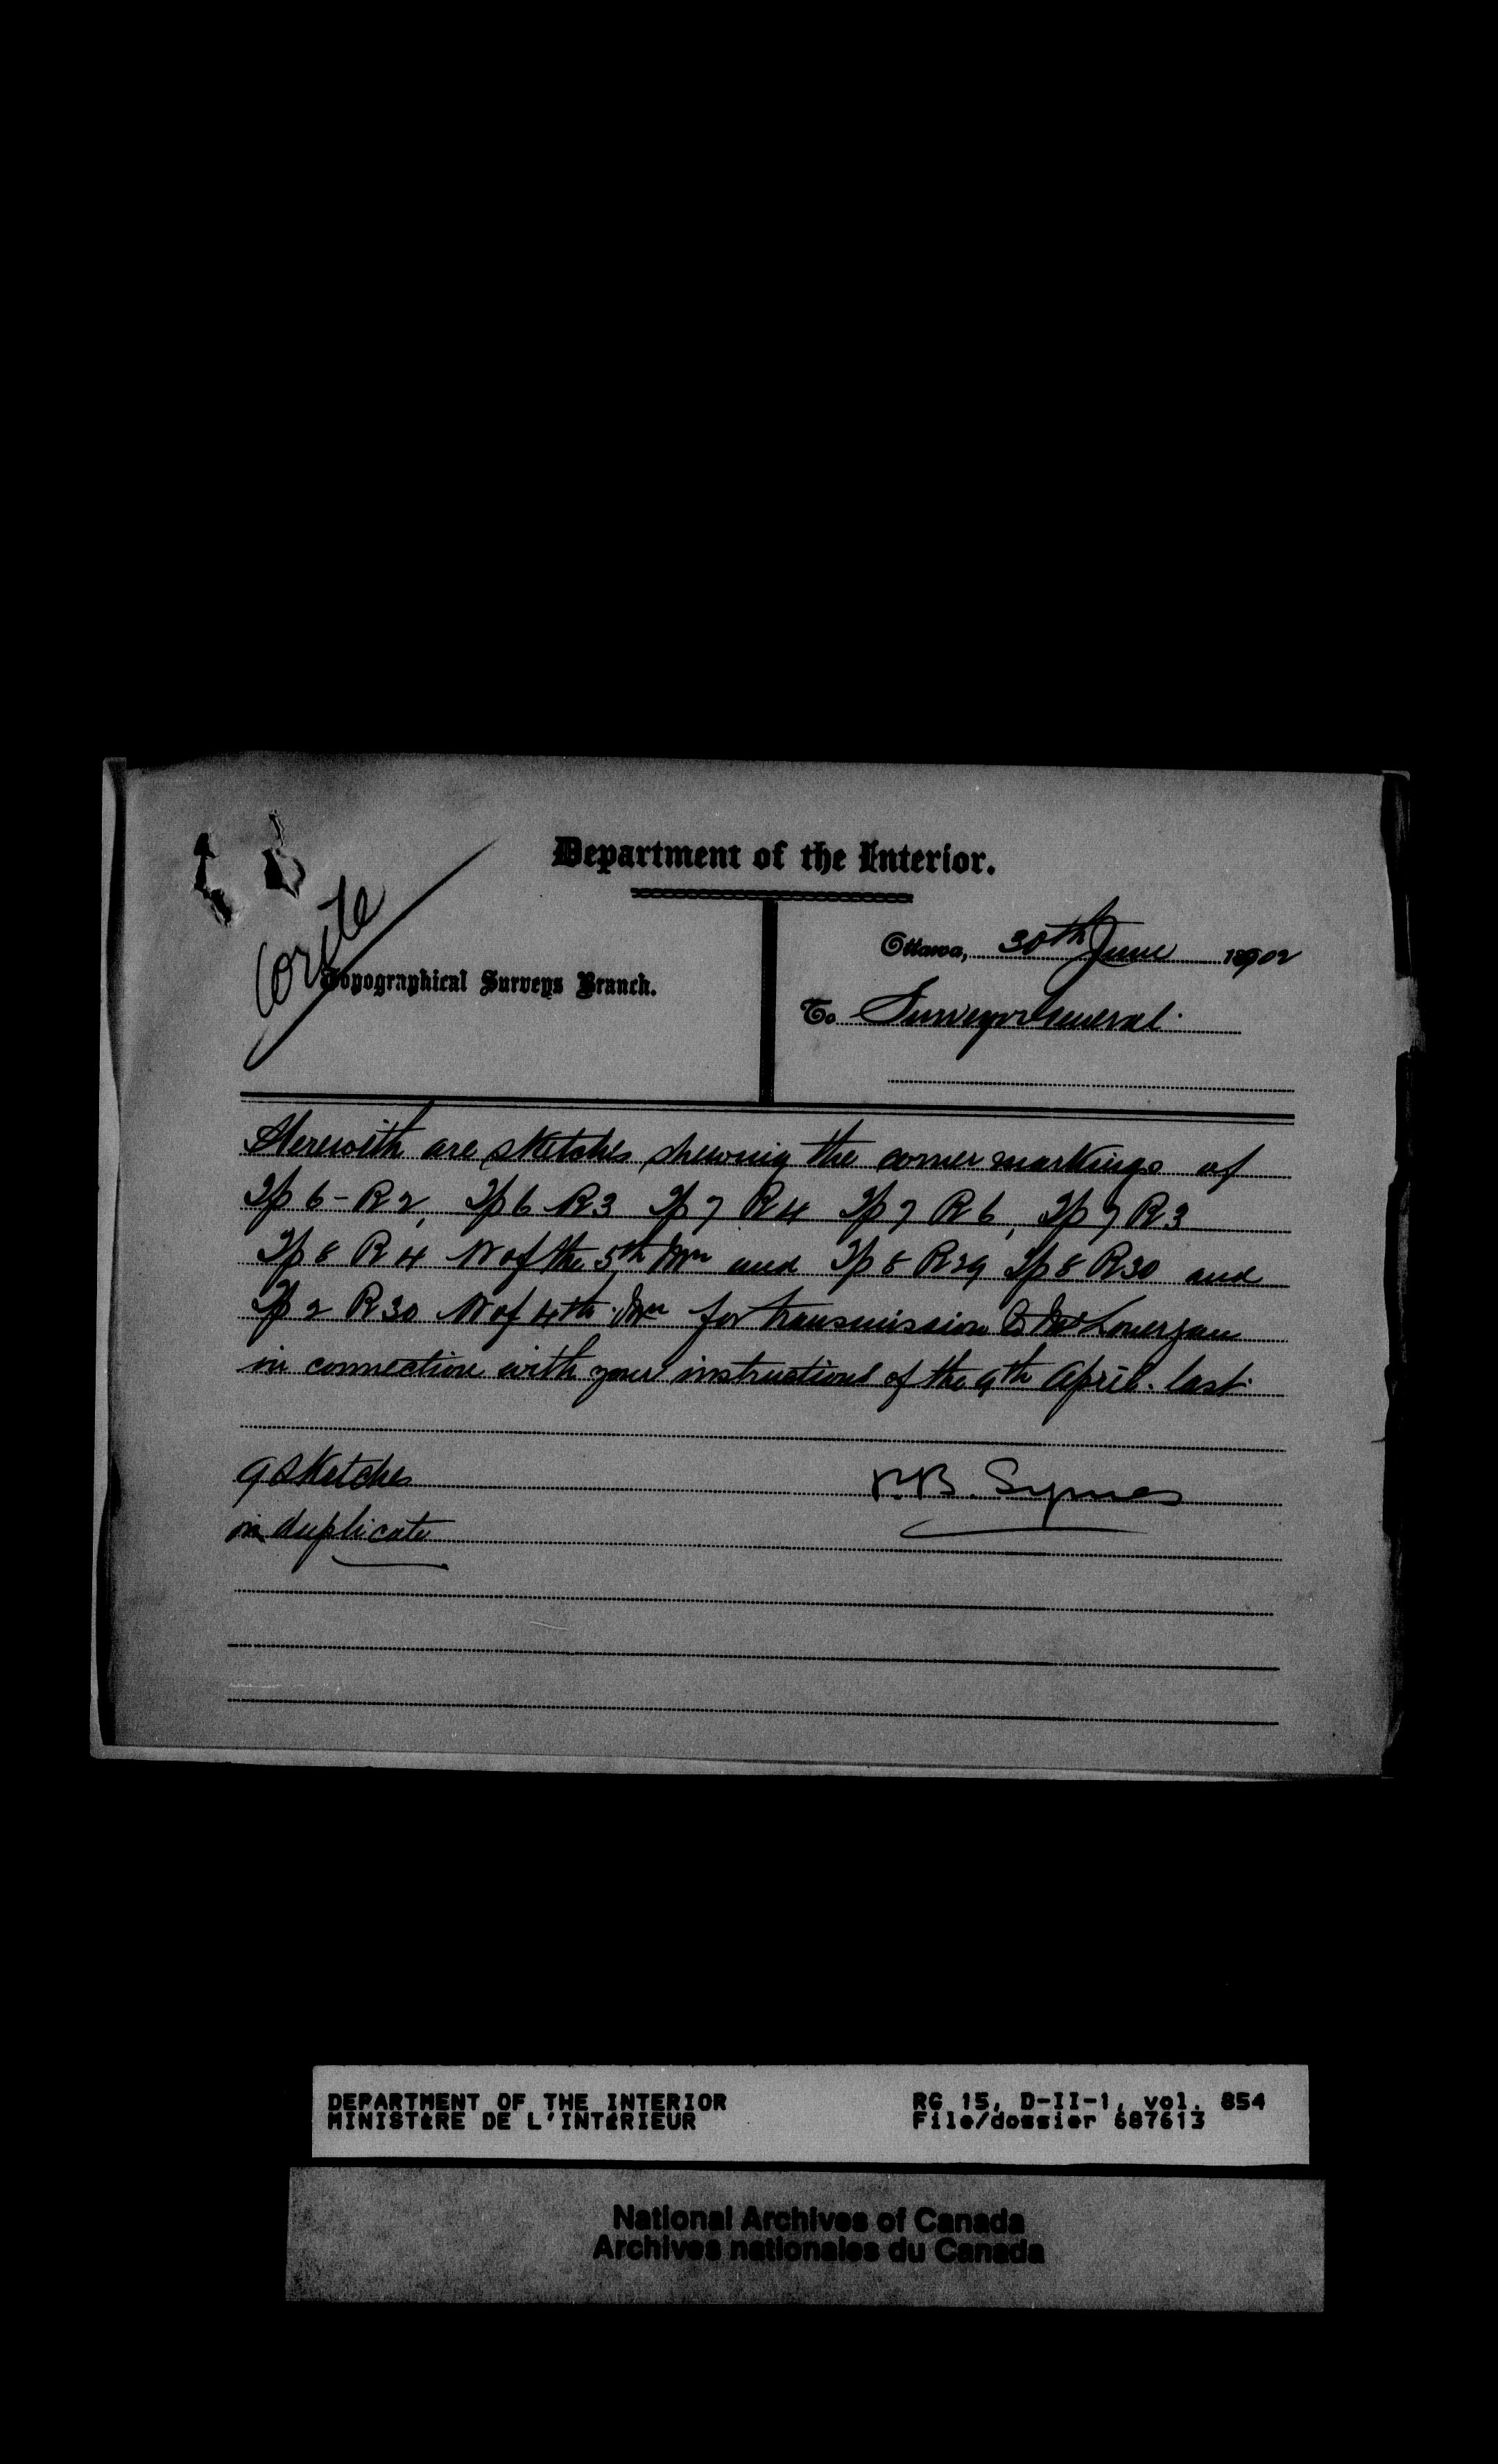 Department of the Interior.
Write
Topographical Surveys Branch.
Ottawa, 30th June 1902
To Surveyor General.
Herewith are sketches shewing the corner markings of
Tp 6 - R 2, Tp 6 R 3 Tp 7 R 4 Tp 7 R 6, Tp 7 R 3
Tp 8 R 4 W of the 5th Mn and Tp 8 R 29 Tp 8 R 30 and
Tp 2 R 30 W of 4th Mn for transmission to Mr Lonergan
in connection with your instructions of the 9th April last.
9 sketches
in duplicate
P.B. Symes
DEPARTMENT OF THE INTERIOR
MINISTÈRE DE L'INTÉRIEUR
RG 15, D-II-1, vol. 854
File/dossier 687613
National Archives of Canada
Archives nationales du Canada